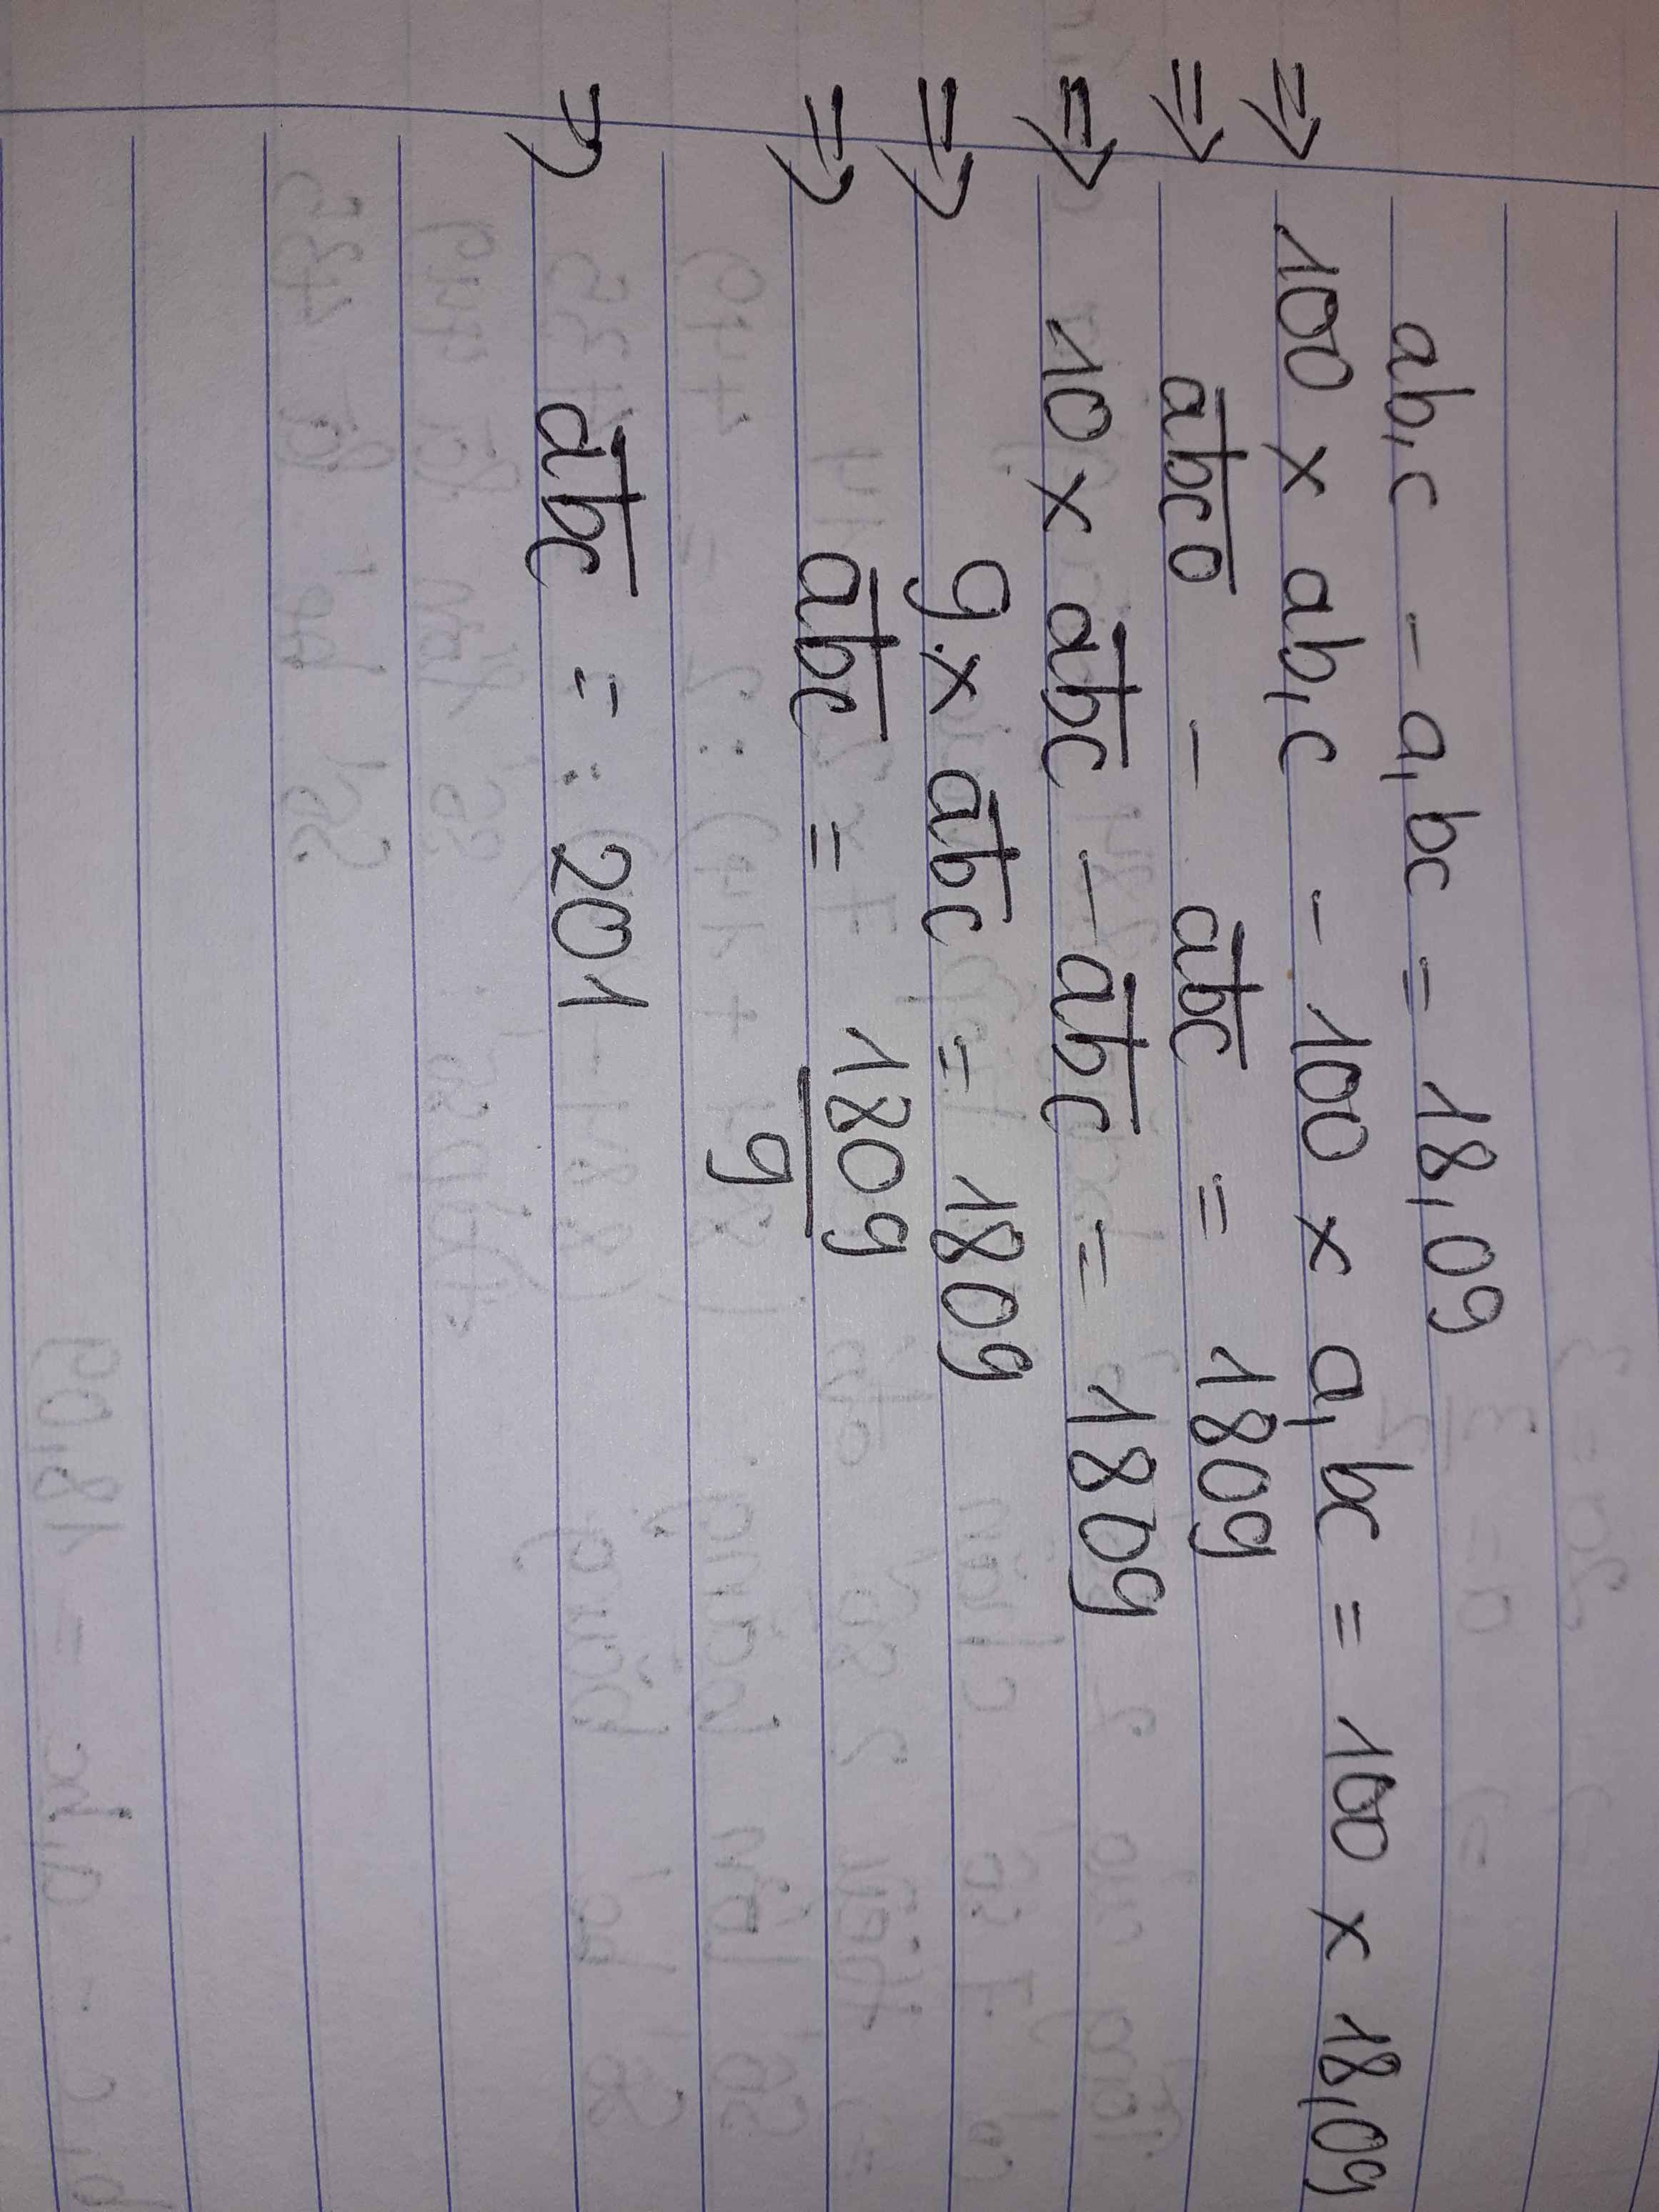 ab,c - a,bc = 18,09
⇒ 100 x ab,c - 100 x a,bc = 100 x 18,09
⇒ abc0 - abc = 1809
⇒ 10 x abc - abc = 1809
⇒ 9 x abc = 1809
⇒ abc = 1809
9
⇒ abc = : 201